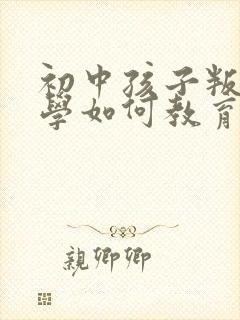 初中孩子叛
學如何教育
親卿卿